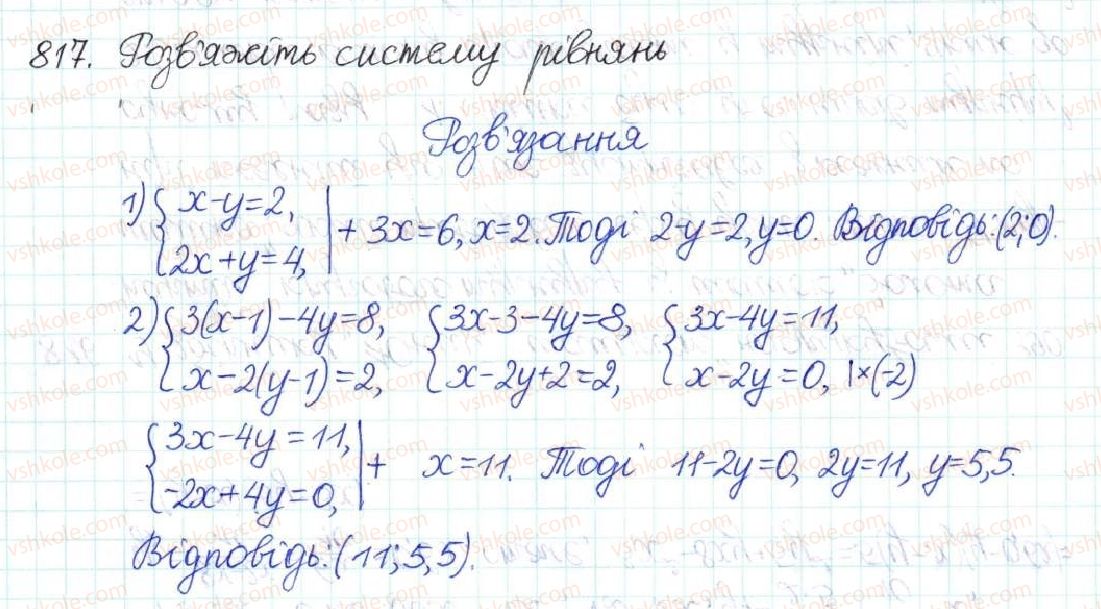 817. Розв'яжіть систему рівнянь
Розв'язання
1) { x-y=2, 2x+y=4, | + 3x=6, x=2. Тоді 2-y=2, y=0. Відповідь: (2;0).
2) { 3(x-1)-4y=8, x-2(y-1)=2, { 3x-3-4y=8, x-2y+2=2, { 3x-4y=11, x-2y=0, |×(-2)
{ 3x-4y=11, -2x+4y=0, | + x=11. Тоді 11-2y=0, 2y=11, y=5,5.
Відповідь: (11; 5,5).